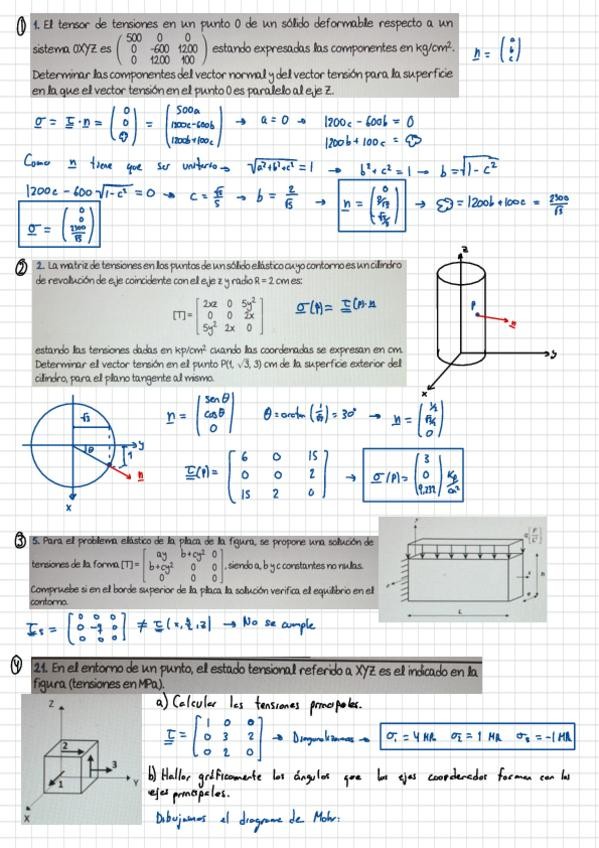 ① 1. El tensor de tensiones en un punto O de un sólido deformable respecto a un
sistema OXYZ es (500 0 0; 0 -600 1200; 0 1200 100) estando expresadas las componentes en kg/cm².
n = (a; b; c)
Determinar las componentes del vector normal y del vector tensión para la superficie
en la que el vector tensión en el punto O es paralelo al eje Z.
σ = Σ · n = (0; 0; ) = (500a; 1200c-600b; 1200b+100c) → a = 0 → 1200c - 600b = 0
1200b + 100c =
Como n tiene que ser unitario → √a²+b²+c² = 1 → b²+c² = 1 → b = √1-c²
1200c - 600√1-c² = 0 → c = √5/5 → b = 2/√5 → n = (0; 2/√5; √5/5) → = 1200b + 100c = 2500/√5
σ = (0; 0; 2500/√5)
② 2. La matriz de tensiones en los puntos de un sólido elástico cuyo contorno es un cilindro
de revolución de eje coincidente con el eje z y radio R = 2 cm es:
[T] = [2xz 0 5y²; 0 0 2x; 5y² 2x 0] σ(P) = Σ(P)·n
estando las tensiones dadas en kp/cm² cuando las coordenadas se expresan en cm.
Determinar el vector tensión en el punto P(1, √3, 3) cm de la superficie exterior del
cilindro, para el plano tangente al mismo.
z
P
n
y
x
√3
θ
y
1
n
x
n = (sen θ; cos θ; 0) θ = arctan (1/√3) = 30° → n = (1/2; √3/2; 0)
Σ(P) = [6 0 15; 0 0 2; 15 2 0] → σ(P) = (3; 0; 9,232) kp/cm²
③ 5. Para el problema elástico de la placa de la figura, se propone una solución de
tensiones de la forma [T] = [ay b+cy² 0; b+cy² 0 0; 0 0 0], siendo a, b y c constantes no nulas.
Compruebe si en el borde superior de la placa la solución verifica el equilibrio en el
contorno.
L
Σs = [0 0 0; 0 -q 0; 0 0 0] ≠ Σ(x,y,z) → No se cumple
④ 21. En el entorno de un punto, el estado tensional referido a XYZ es el indicado en la
figura (tensiones en MPa).
a) Calcular las tensiones principales.
Z
2
3
1
Y
X
Σ = [1 0 0; 0 3 2; 0 2 0] → Diagonalizamos → σ₁ = 4 MPa σ₂ = 1 MPa σ₃ = -1 MPa
b) Hallar gráficamente los ángulos que los ejes coordenados forman con los
ejes principales.
Dibujamos el diagrama de Mohr: